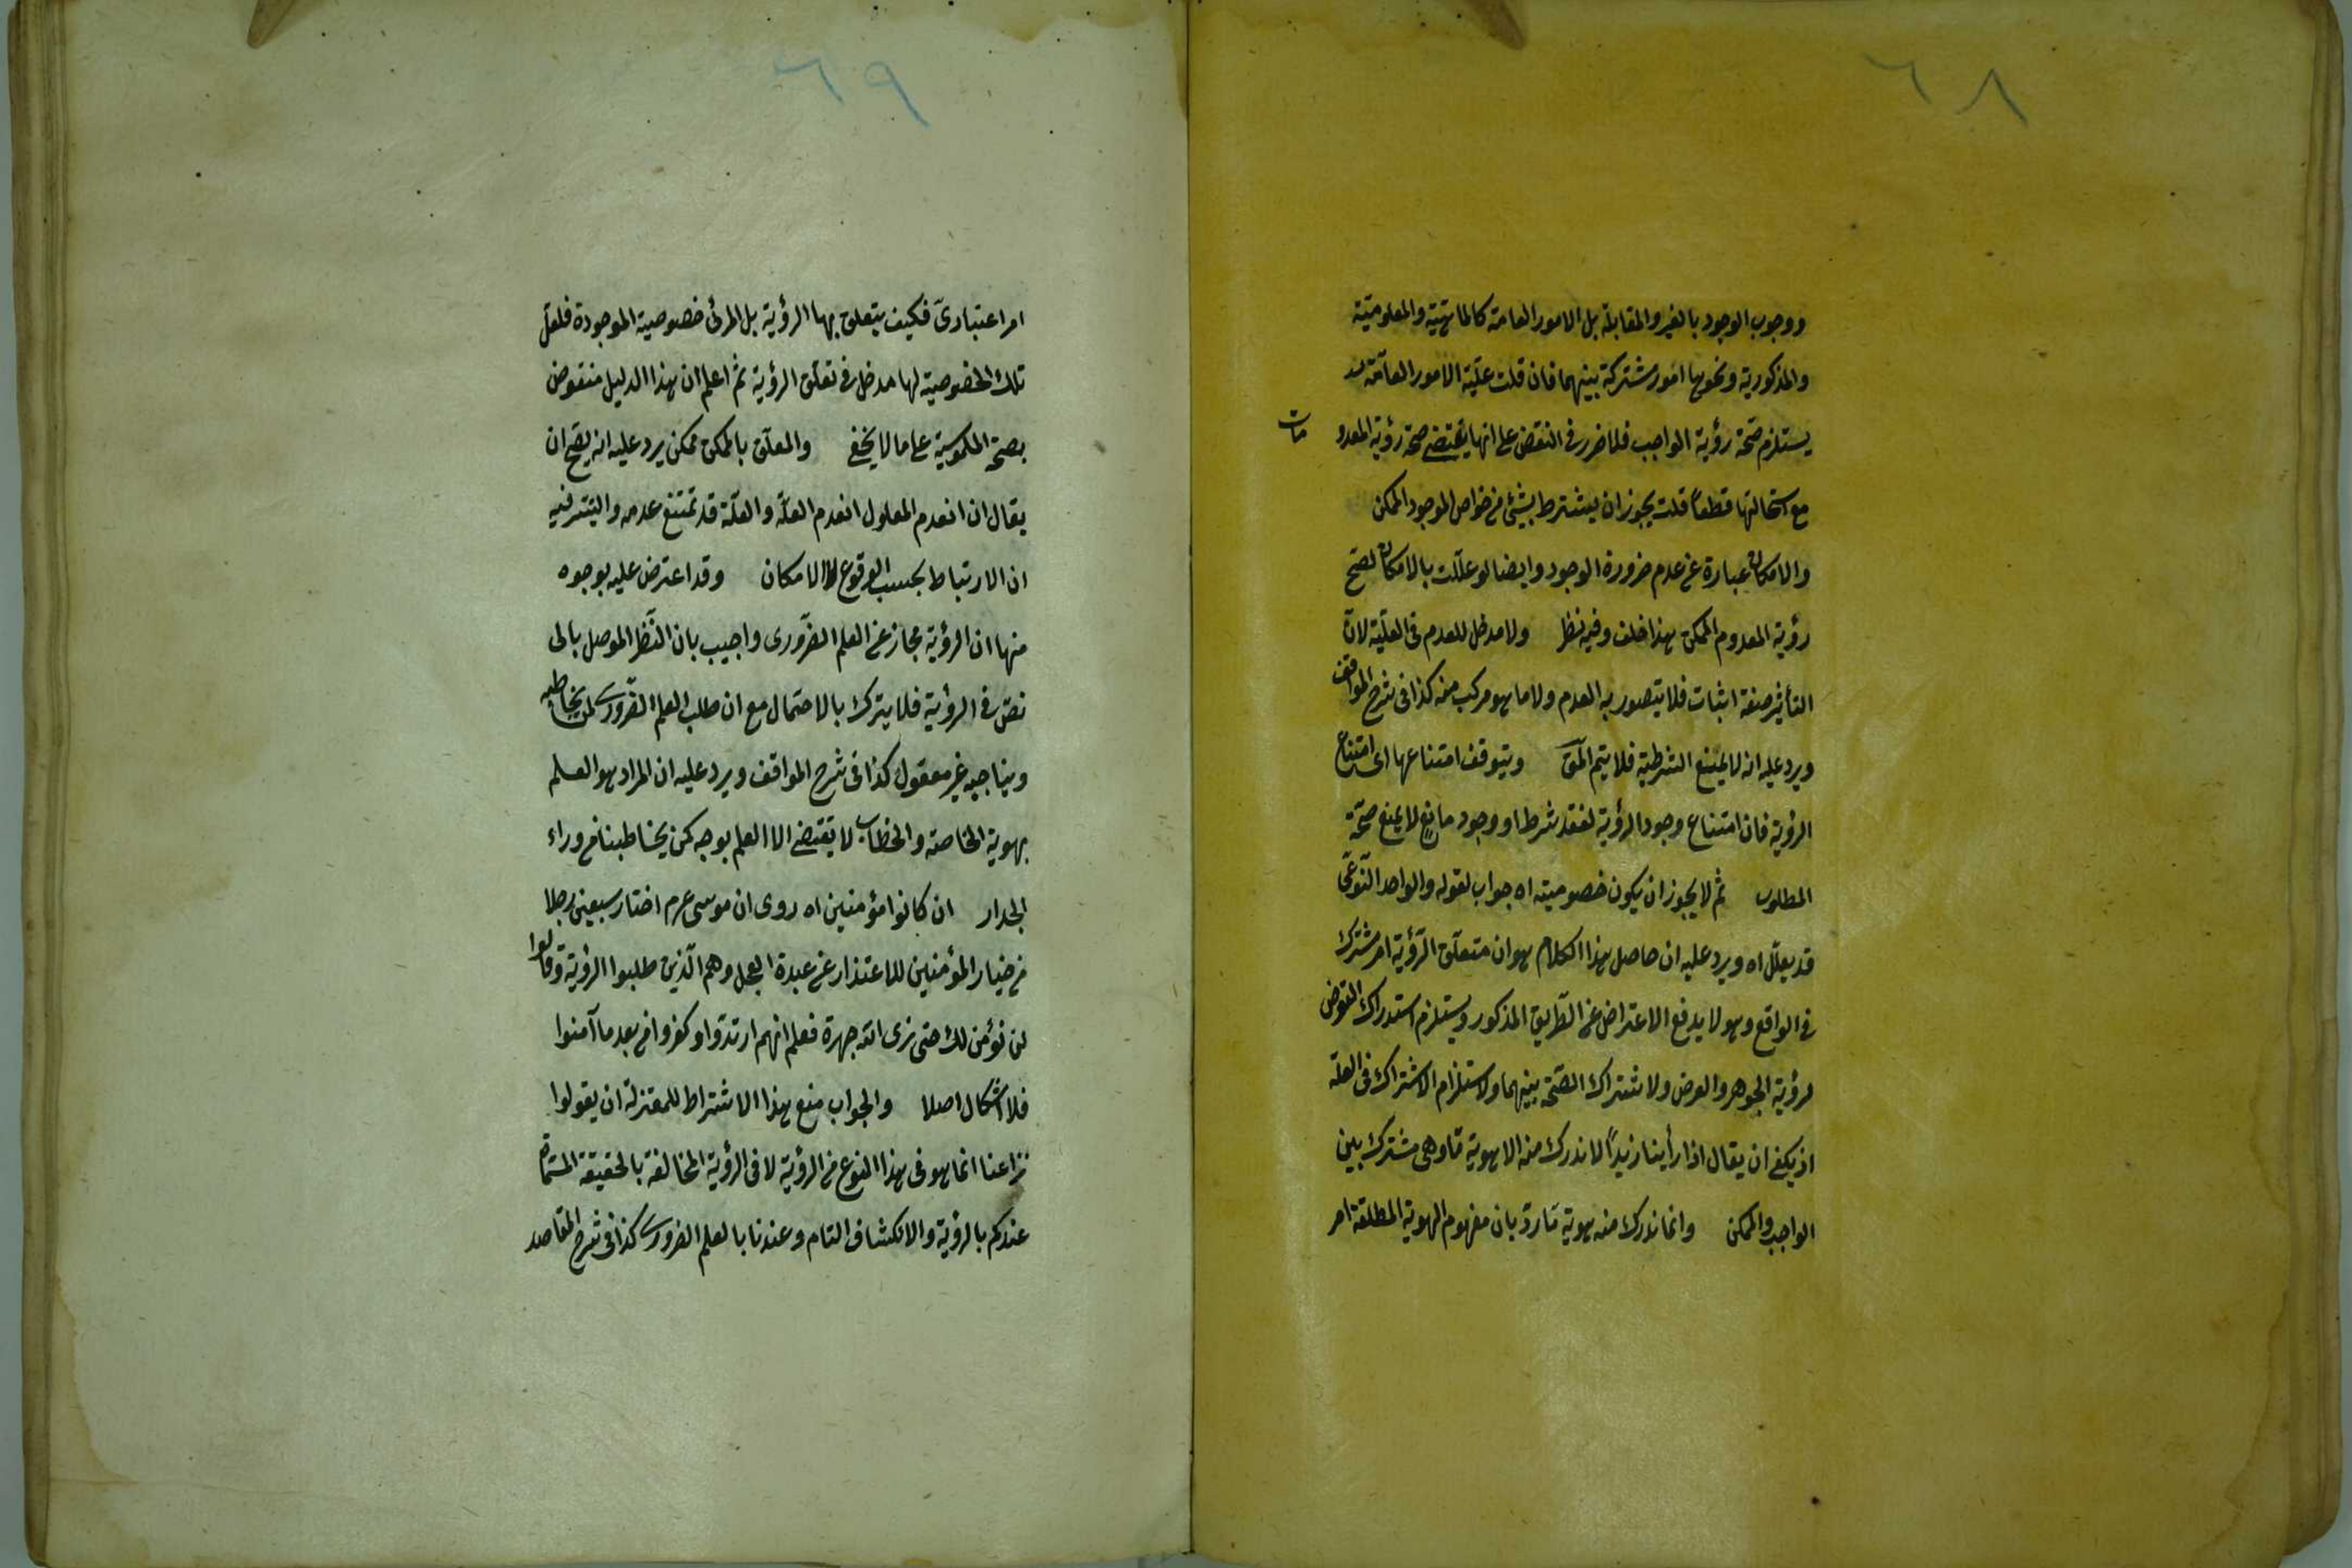 ٦٨
ووجوب الوجود بالغير والمقابلة بل الامور العامة كالماهيّة والمعلوميّة
والمذكورية ونحوها امور مشتركة بينهما فان قلت علّية الامور العامّة
يستلزم صحّة رؤية الواجب فلا ضرر في النقض على انها يقتضى صحة رؤية المعدومات
مع استحالتها قطعاً قلت يجوز ان يشترط بشيئ من خواص الموجود الممكن
والامكان عبارة عن عدم ضرورة الوجود وايضا لو علّلت بالامكان لصحّ
رؤية المعدوم الممكن هذا خلف وفيه نظر ولا مدخل للعدم في العلّية لانّ
التأثير صفة اثبات فلا يتصور به العدم ولا ما هو مركب منه كذا في شرح المواقف
ويرد عليه انه لا يمنع الشرطية فلا يتم المق ويتوقف امتناعها اى امتناع
الرؤية فان امتناع وجود الرؤية لفقد شرط او وجود مانع لا يمنع صحّة
المطلوب ثم لا يجوز ان يكون خصوصيته اه جواب لقوله والواحد النّوعىّ
قد يعلّل اه ويرد عليه ان حاصل هذا الكلام هو ان متعلّق الرّؤية امر مشترك
في الواقع وهو لا يدفع الاعتراض عن الطّريق المذكور ويستلزم استدراك التعرض
لرؤية الجوهر والعرض ولاشتراك الصّحّة بينهما ولاستلزام الاشتراك في العلّة
اذ يكفى ان يقال اذا رأينا زيداً لا ندرك منه الا هوية مّا وهى مشترك بين
الواجب والممكن وانما ندرك منه هوية مّا ردّ بان مفهوم الهوية المطلقة امر
٦٩
امر اعتبارىّ فكيف يتعلق بها الرؤية بل المرئى خصوصية الموجودة فلعلّ
تلك الخصوصية لها مدخل في تعلّق الرؤية ثم اعلم ان هذا الدليل منقوض
بصحّة الملموسية على ما لا يخفى والمعلّق بالممكن ممكن يرد عليه انه يصحّ ان
يقال ان انعدم المعلول انعدم العلّة والعلّة قد تمتنع عدمه والسّر فيه
ان الارتباط بحسب الوقوع لا الامكان وقد اعترض عليه بوجوه
منها ان الرؤية مجاز عن العلم الضّرورى واجيب بان النّظر الموصل بالى
نصّ في الرؤية فلا يترك بالاحتمال مع ان طلب العلم الضّرورى لمن يخاطبه
ويناجيه غير معقول كذا في شرح المواقف ويرد عليه ان المراد هو العلم
بهوية الخاصة والخطاب لا يقتضى الا العلم بوجه كمن يخاطبنا من وراء
الجدار ان كانوا مؤمنين اه روى ان موسى عرم اختار سبعين رجلا
من خيار المؤمنين للاعتذار عن عبدة العجل وهم الّذين طلبوا الرؤية وقالوا
لن نؤمن لك حتى نرى الله جهرة فعلم انهم ارتدّوا وكفروا من بعد ما آمنوا
فلا اشكال اصلا والجواب منع هذا الاشتراط للمعتزلة ان يقولوا
نزاعنا انما هو في هذا النوع من الرؤية لا في الرؤية المخالفة بالحقيقة المسّماة
عندكم بالرؤية والانكشاف التام وعندنا بالعلم الضرورى كذا في شرح المقاصد